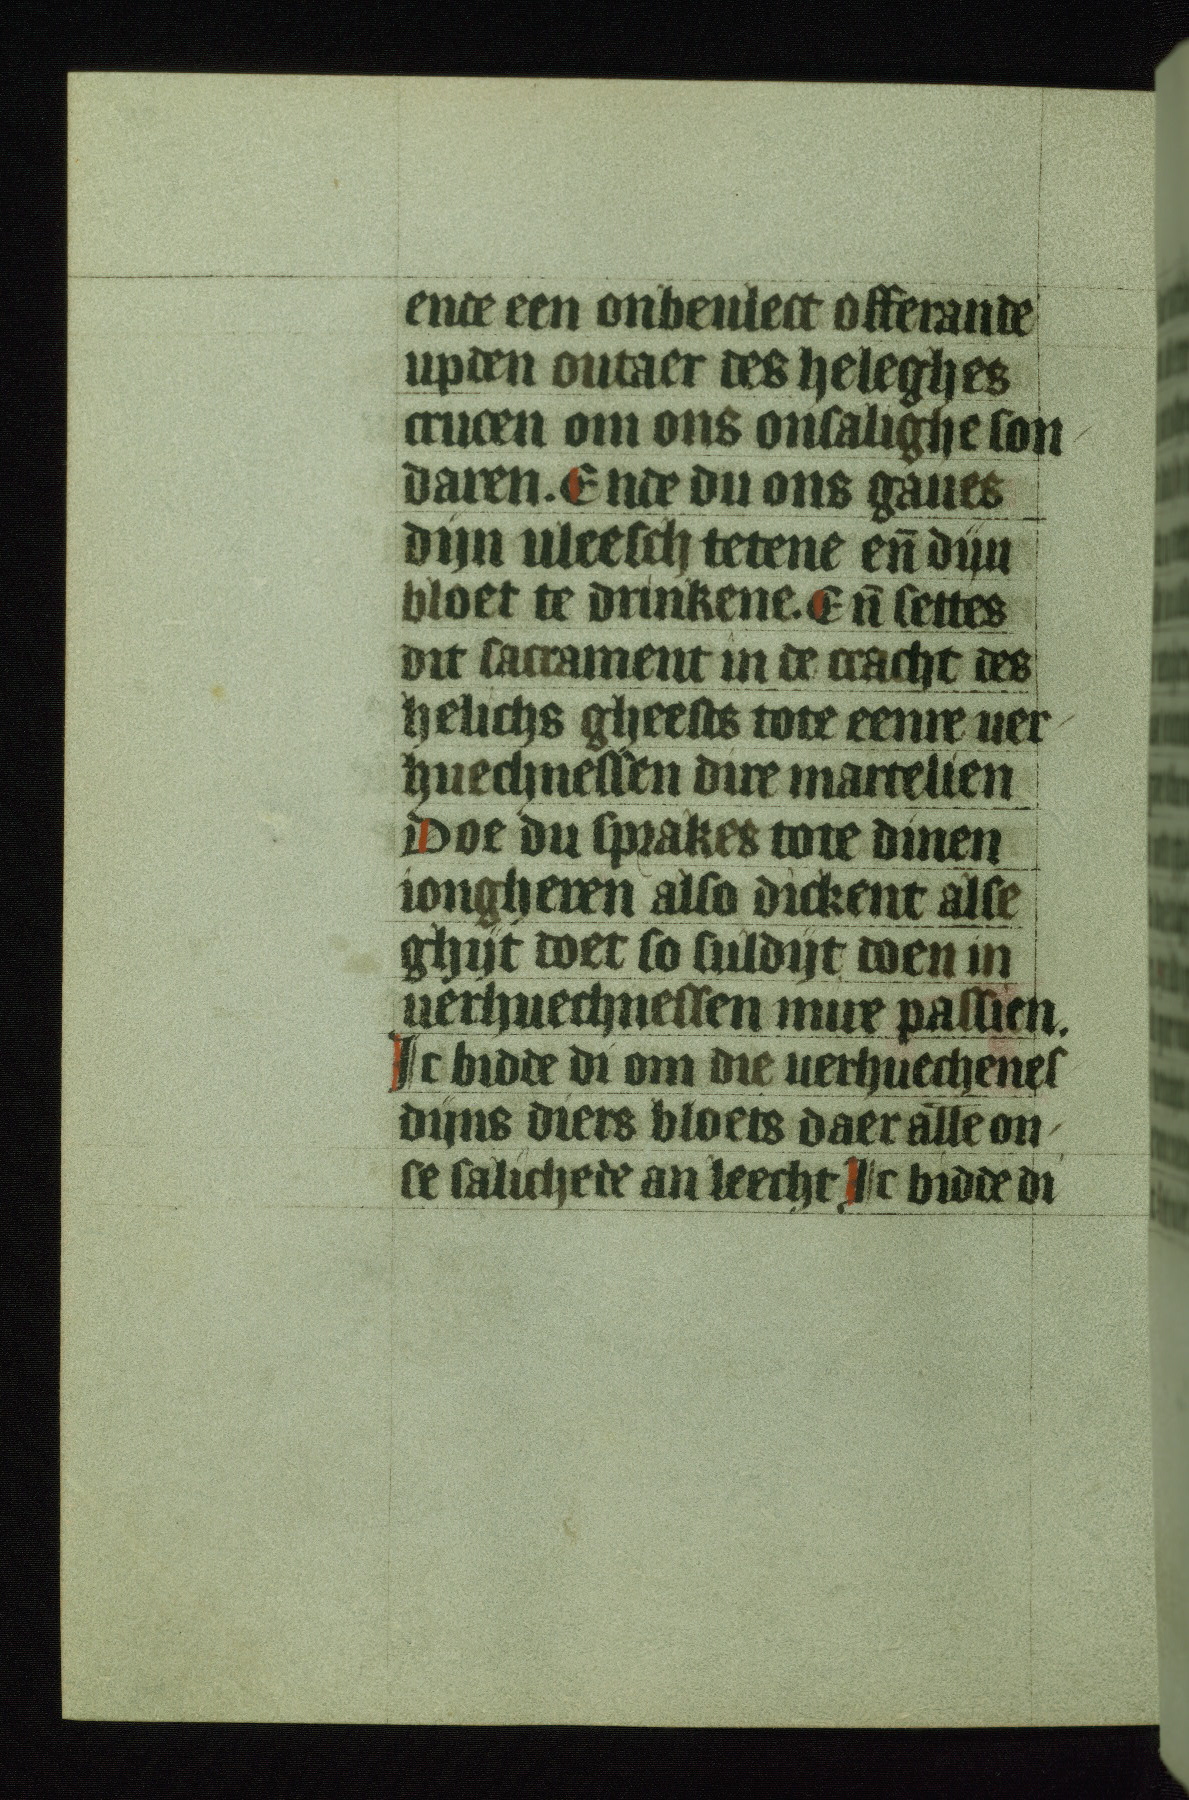 ende een onbeulect offerande
upden outaer des heleghes
crucen om ons onsalighe son
daren. Ende du ons gaues
dijn uleesch tetene eñ dijn
bloet te drinkene. Eñ settes
dit sacrament in de cracht des
helichs gheests tote eenre uer
huechnessen dire martelien
Doe du sprakes tote dinen
iongheren also dickent alse
ghijt doet so suldijt doen in
uerhuechnessen mire passien.
Ic bidde di om die uerhuechenes
dijns diers bloets daer alle on
se salichede an leecht. Ic bidde di